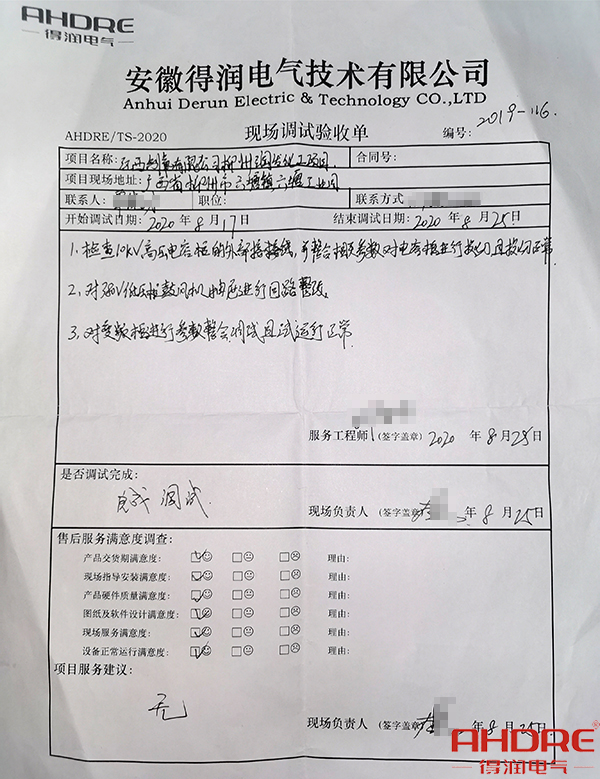 AHDRE
得润电气
安徽得润电气技术有限公司
Anhui Derun Electric & Technology CO.,LTD
AHDRE/TS-2020 现场调试验收单 编号: 2019-116
项目名称: 有限公司柳州 化工项目 合同号:
项目现场地址: 广西省柳州市六塘镇六塘工业园
联系人: 职位: 联系方式
开始调试日期: 2020年8月17日 结束调试日期: 2020年8月25日
1、检查10kV高压电容柜的外部接线,并整合相关参数对电容柜进行投切且投切正常
2、对380V低压柜鼓风机抽屉进行回路整改。
3、对变频柜进行参数整合调试且试运行正常
服务工程师 (签字盖章) 2020年8月25日
是否调试完成:
完成调试.
现场负责人 (签字盖章) 年8月25日
售后服务满意度调查:
产品交货期满意度: 理由:
现场指导安装满意度: 理由:
产品硬件质量满意度: 理由:
图纸及软件设计满意度: 理由:
现场服务满意度: 理由:
设备正常运行满意度: 理由:
项目服务建议:
无
现场负责人 (签字盖章) 年8月25日
AHDRE®
得润电气